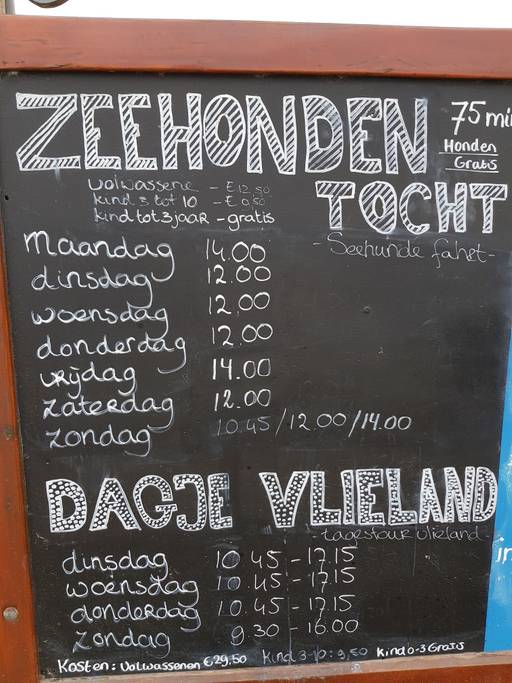 ZEEHONDEN
75 min
Honden
Gratis
TOCHT
volwassene - €12,50
kind 3 tot 10 - € 9,50
kind tot 3 jaar - gratis
- Seehunde fahrt -
maandag 14.00
dinsdag 12.00
woensdag 12.00
donderdag 12.00
vrijdag 14.00
zaterdag 12.00
zondag 10.45/12.00/14.00
DAGJE VLIELAND
- tagestour vlieland -
dinsdag 10.45 - 17.15
woensdag 10.45 - 17.15
donderdag 10.45 - 17.15
zondag 9.30 - 16.00
Kosten: Volwassenen €29,50 Kind 3-10: 9,50 Kind 0-3 Gratis